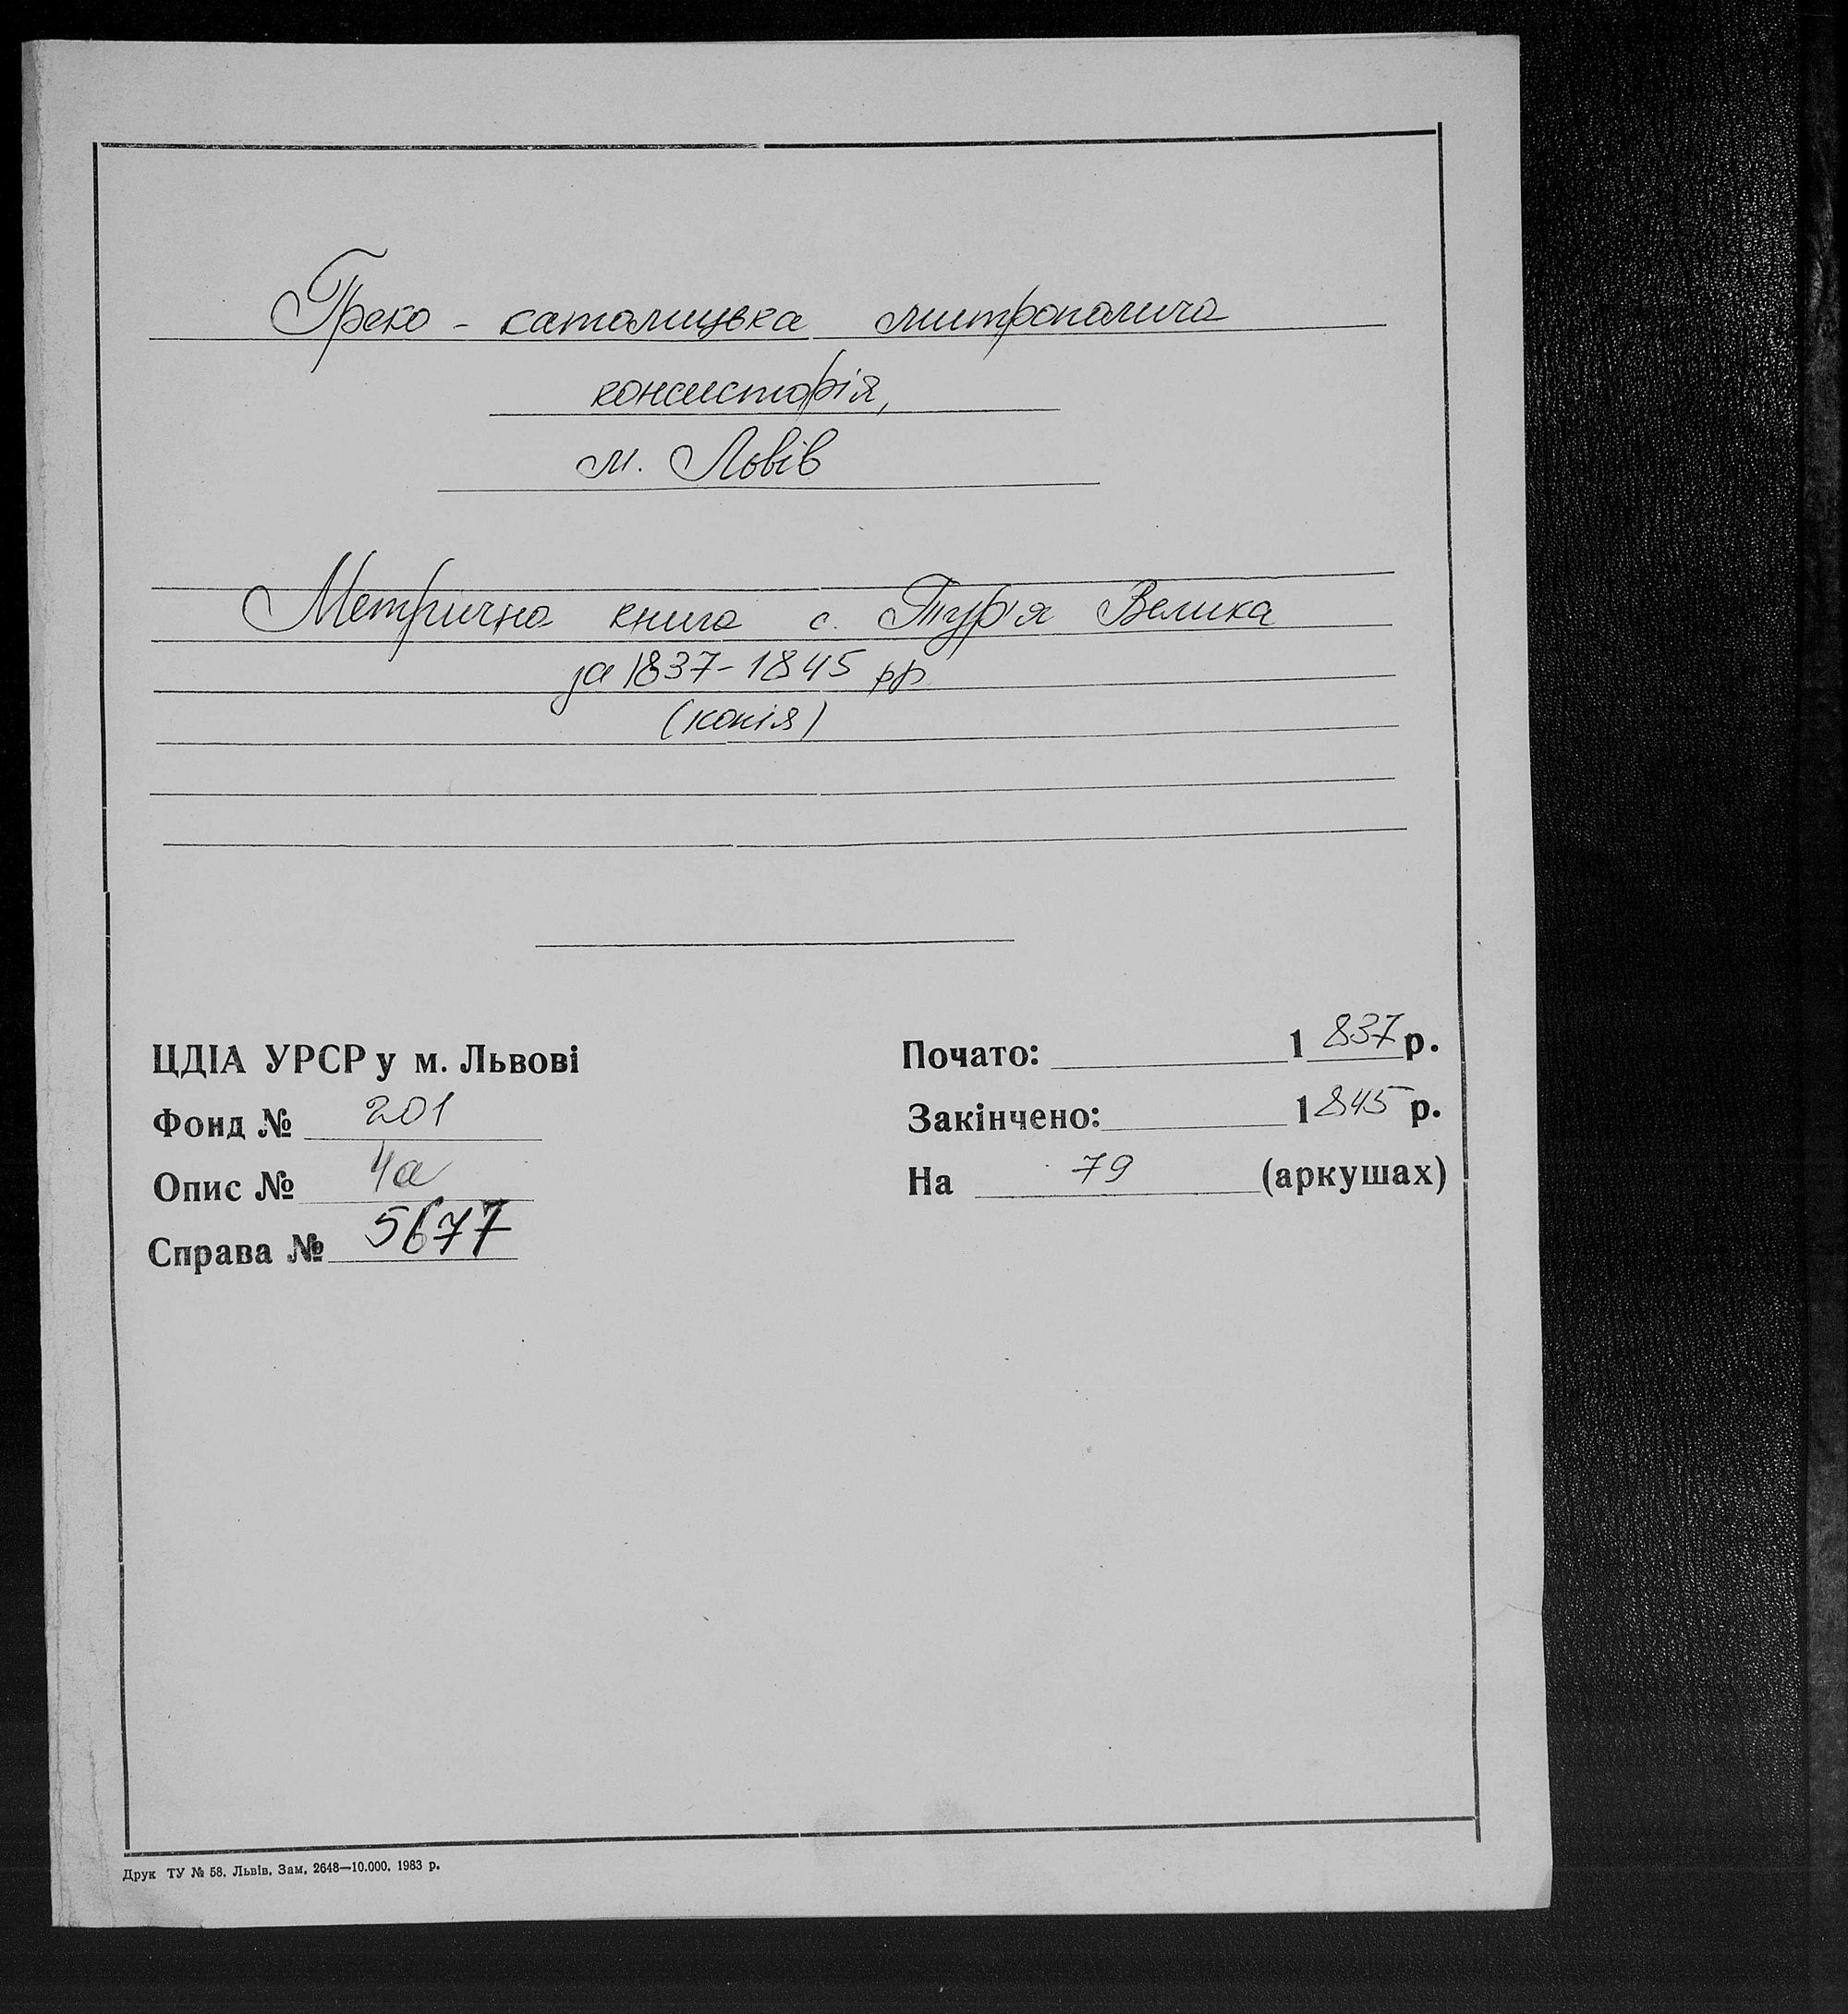 Греко - католицька митрополича
консисторія,
м. Львів
Метрична книга с. Тур'я Велика
за 1837-1845 рр
(копія)
ЦДІА УРСР у м. Львові
Фонд № 201
Опис № 4а
Справа № 5677
Почато: 1 837 р.
Закінчено: 1 845 р.
На 79 (аркушах)
Друк ТУ № 58. Львів. Зам. 2648—10.000. 1983 р.